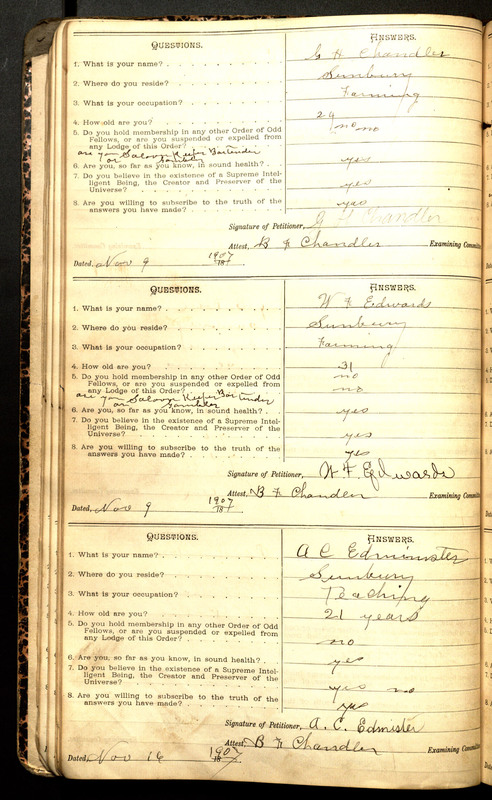 QUESTIONS. ANSWERS.
1. What is your name? G H Chandler
2. Where do you reside? Sunbury
3. What is your occupation? Farming
4. How old are you? 29
5. Do you hold membership in any other Order of Odd no no
Fellows, or are you suspended or expelled from
any Lodge of this Order?
are you Saloon Keeper Bartender
or Gambler
6. Are you, so far as you know, in sound health? yes
7. Do you believe in the existence of a Supreme Intel-
ligent Being, the Creator and Preserver of the
Universe? yes
8. Are you willing to subscribe to the truth of the
answers you have made? yes
Signature of Petitioner, G H Chandler
Attest, B F Chandler Examining Committ
Dated, Nov 9 1907
187
QUESTIONS. ANSWERS.
1. What is your name? W F Edwards
2. Where do you reside? Sunbury
3. What is your occupation? Farming
4. How old are you? 31
5. Do you hold membership in any other Order of Odd no
Fellows, or are you suspended or expelled from
any Lodge of this Order? no
are you Saloon Keeper Bartender
or Gambler
6. Are you, so far as you know, in sound health? yes
7. Do you believe in the existence of a Supreme Intel-
ligent Being, the Creator and Preserver of the
Universe? yes
8. Are you willing to subscribe to the truth of the
answers you have made? yes
Signature of Petitioner, W. F. Edwards
Attest, B F Chandler Examining Committ
Dated, Nov 9 1907
187
QUESTIONS. ANSWERS.
1. What is your name? A C Edminster
2. Where do you reside? Sunbury
3. What is your occupation? Teaching
4. How old are you? 21 years
5. Do you hold membership in any other Order of Odd
Fellows, or are you suspended or expelled from
any Lodge of this Order? no
6. Are you, so far as you know, in sound health? yes
7. Do you believe in the existence of a Supreme Intel-
ligent Being, the Creator and Preserver of the
Universe? yes no
8. Are you willing to subscribe to the truth of the
answers you have made? yes
Signature of Petitioner, A. C. Edmister
Attest, B F Chandler Examining Committ
Dated, Nov 16 1907
187